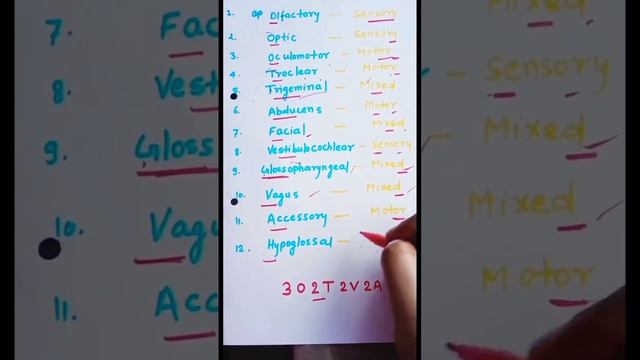 1. op Olfactory — Sensory
2. Optic — Sensory
3. Oculomotor — Motor
4. Troclear — Motor
5. Trigeminal — Mixed
6. Abducens — Motor
7. Facial — Mixed
8. Vestibulocochlear - Sensory
9. Glossopharyngeal - Mixed
10. Vagus — Mixed
11. Accessory — Motor
12. Hypoglossal —
3 O 2 T 2 V 2 A
7. Fac
8. Vest
9. Gloss
10. Vagu
11. Acc
- Sensory
Mixed
Mixed
Motor